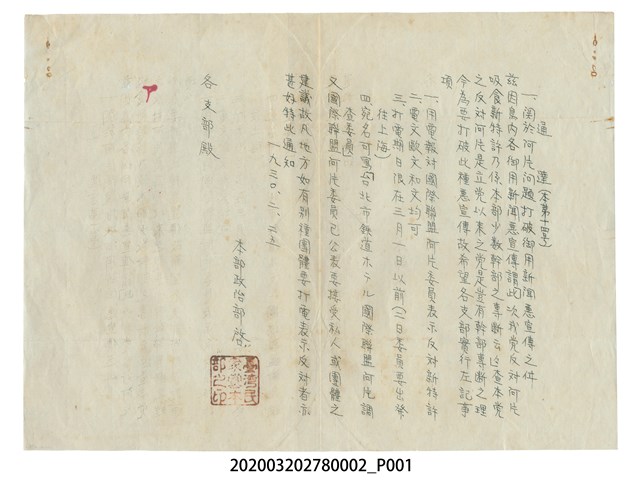 通達(本第十四号)
一、関於阿片問題打破御用新聞悪宣伝之件
茲因島内各御用新聞悪宣伝謂此次我党反対阿片
吸食新特許乃係本部少数幹部之専断云々查本党
之反対阿片是立党以来之党是豈有幹部専断之理
今為要打破此種悪宣伝故希望各支部実行左記事
項
一、用電報対国際聯盟阿片委員表示反対新特許
二、電文欧文和文均可
三、打電期日限在三月一日以前(二日委員要出発
往上海)
四、宛名可寫「台北市鉄道ホテル国際聯盟阿片調
查委員」
又国際聯盟阿片委員已公表要接受私人或団体之
建議故凡地方如有別種團體要打電表示反対者亦
甚好特此通知
一九三〇、二、二五
本部政治部啓
各支部殿
臺灣民
衆黨本
部之印
202003202780002_P001